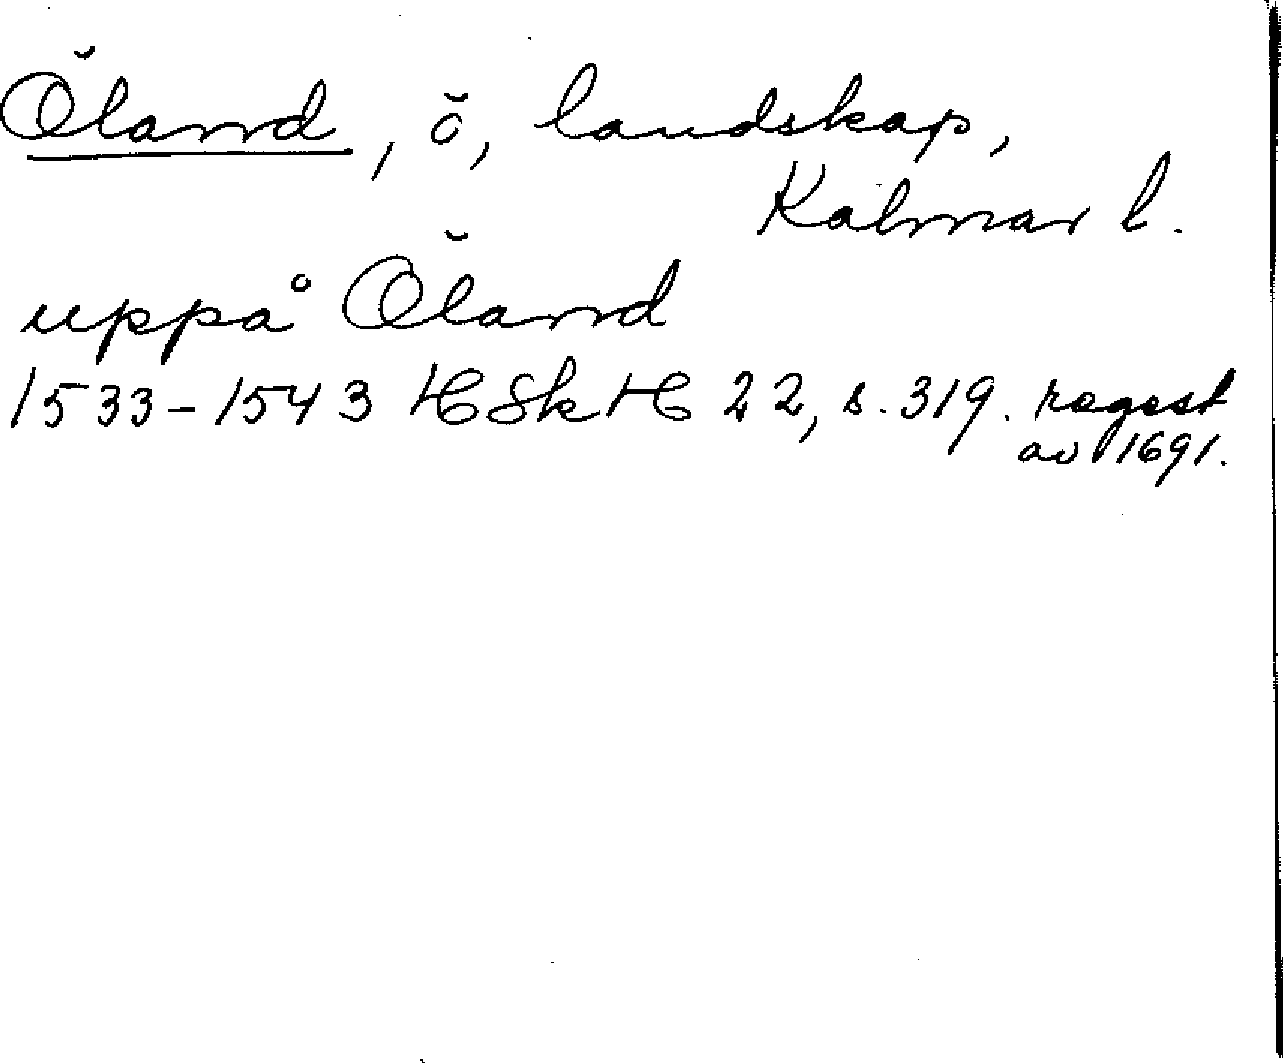 Öland, ö, landskap,
Kalmar l.
uppå Öland
1533-1543 HSkH 22, s. 319. regest
av 1691.